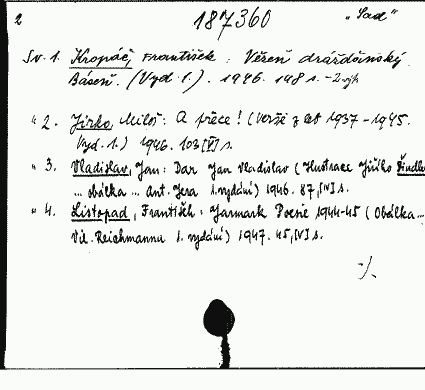 2 187360 "Sad"
Sv. 1. Kropáč, František: Vězeň drážďanský.
Báseň. (Vyd. 1.). 1946. 148 s. - 2 výt.
" 2. Jirko, Miloš: A přece! (Verše z let 1937-1945.
Vyd. 1.) 1946. 103 [V] s.
" 3. Vladislav, Jan: Dar Jan Vladislav (Ilustrace Jiřího Šindler
... obálka ... Ant. Jera 1. vydání) 1946. 87, [IV] s.
" 4. Listopad, František: Jarmark Poesie 1944-45 (Obálka ...
Vil. Reichmanna 1. vydání) 1947. 45, [V] s.
./.